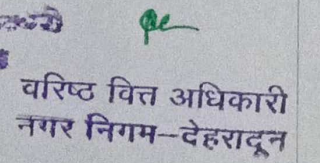 वरिष्ठ वित्त अधिकारी
नगर निगम–देहरादून